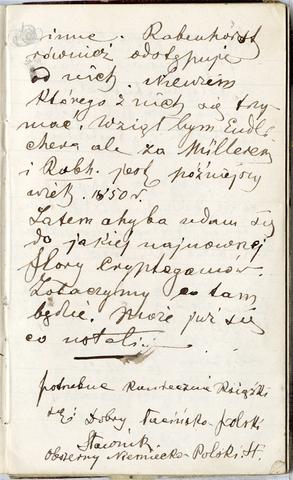 inne. Rabenhorst
również odstępuje
O nich. Niewiem
którego z nich się trzy
mać. Wziął bym Endli
chera ale za Millerem
i Rabh. jest późniejszy
wiek. 1850 r.
Zatem chyba udam się
do jakiej najnowszej
flory Cryptogamów.
Zobaczymy co tam
będzie. Może już się
co ustali...
potrzebne koniecznie Książki
są: Dobry Łacińsko-polski
Słownik
Obszerny Niemiecko-Polski H.